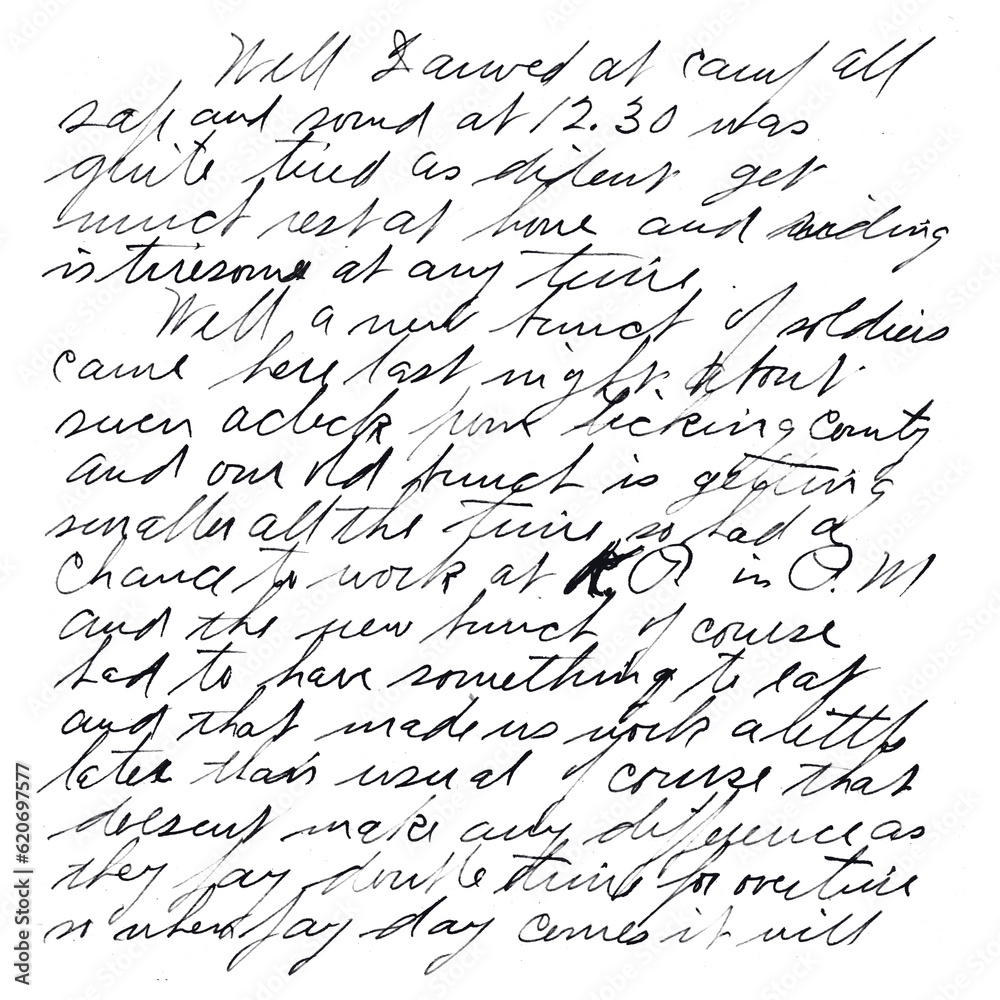 Well I arrived at camp all
safe and sound at 12.30 was
quite tired as dident get
much rest at home and riding
is tiresome at any time
Well a new bunch of soldiers
came here last night about
seven aclock from Licking County
and our old bunch is getting
smaller all the time so had a
chance to work at in Q. M
and the new bunch of course
had to have something to eat
and that made us work a little
later than usual of course that
doesent make any difference as
they pay double time for overtime
so when pay day comes it will
Adobe Stock | #620697577